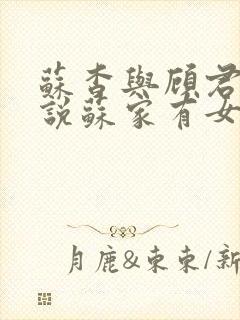 蘇杳與顧君
說蘇家有女
月鹿&東東/新